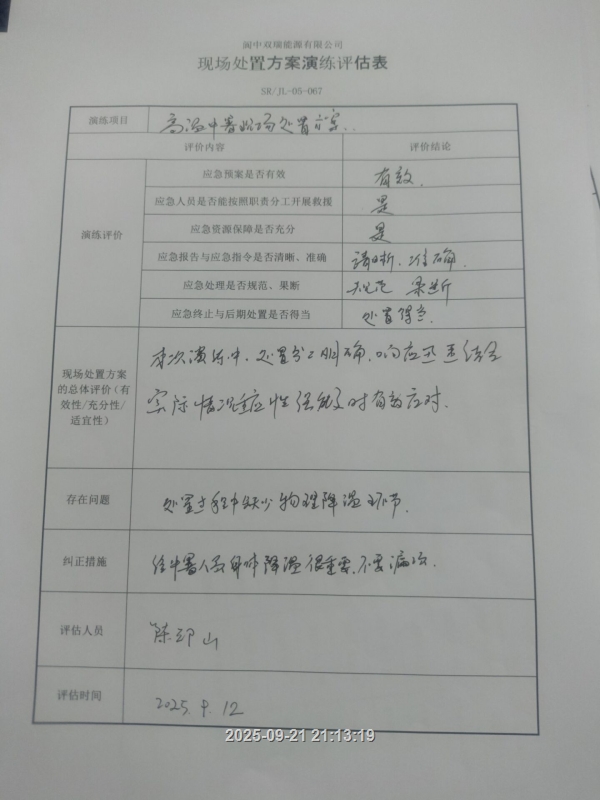 阆中双瑞能源有限公司
现场处置方案演练评估表
SR/JL-05-067
演练项目 高温中暑现场处置方案.
评价内容 评价结论
演练评价
应急预案是否有效 有效.
应急人员是否能按照职责分工开展救援 是
应急资源保障是否充分 是
应急报告与应急指令是否清晰、准确 清晰、准确.
应急处理是否规范、果断 规范 果断
应急终止与后期处置是否得当 处置得当.
现场处置方案
的总体评价(有
效性/充分性/
适宜性)
本次演练中,处置分工明确,响应迅速结合
实际情况适应性强能及时有效应对.
存在问题 处置过程中缺少物理降温环节.
纠正措施 给中暑人员身体降温很重要,不要漏项.
评估人员 陈 山
评估时间 2025.9.12
2025-09-21 21:13:19